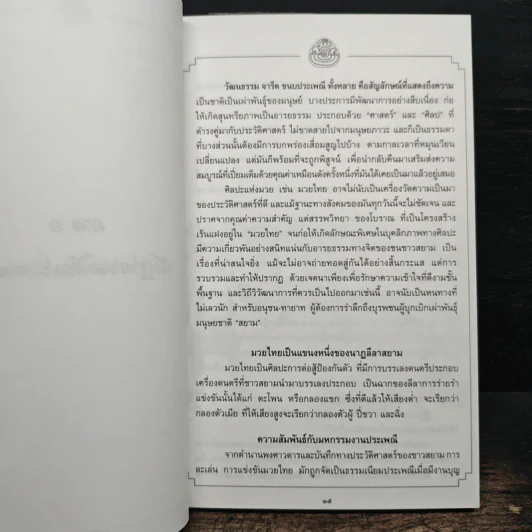 วัฒนธรรม จารีต ขนบประเพณี ทั้งหลาย คือสัญลักษณ์ที่แสดงถึงความ
เป็นชาติเป็นเผ่าพันธุ์ของมนุษย์ บางประการมีพัฒนาการอย่างสืบเนื่อง ก่อ
ให้เกิดสุนทรียภาพเป็นอารยธรรม ประกอบด้วย “ศาสตร์” และ “ศิลป” ที่
ดำรงคู่มากับประวัติศาสตร์ ไม่ขาดสายไปจากมนุษยภาวะ และก็เป็นธรรมดา
ที่บางส่วนนั้นต้องมีการบกพร่องเสื่อมสูญไปบ้าง ตามกาลเวลาที่หมุนเวียน
เปลี่ยนแปลง แต่มันก็พร้อมที่จะถูกพิสูจน์ เพื่อนำกลับคืนมาเสริมส่งความ
สมบูรณ์ที่เปี่ยมเต็มด้วยคุณค่าเหมือนดังครั้งหนึ่งที่มันได้เคยเป็นมาแล้วอยู่เสมอ
ศิลปะแห่งมวย เช่น มวยไทย อาจไม่นับเป็นเครื่องวัดความเป็นมา
ของประวัติศาสตร์ที่ดี และแม้ฐานะทางสังคมของมันทุกวันนี้จะไม่ชัดเจน และ
ปราศจากคุณค่าความสำคัญ แต่สรรพวิทยา ของโบราณ ที่เป็นโครงสร้าง
เร้นแฝงอยู่ใน “มวยไทย” จนก่อให้เกิดลักษณะพิเศษในบุคลิกภาพทางศิลปะ
มีความเกี่ยวพันอย่างสนิทแน่นกับอารยธรรมทางจิตของชนชาวสยาม เป็น
เรื่องที่น่าสนใจยิ่ง แม้จะไม่อาจถ่ายทอดสู่กันได้อย่างสิ้นกระแส แต่การ
รวบรวมและทำให้ปรากฏ ด้วยเจตนาเพียงเพื่อรักษาความเข้าใจที่ดีงามขั้น
พื้นฐาน และวิถีวิวัฒนาการที่ควรเป็นไปออกมาเช่นนี้ อาจนับเป็นหนทางที่
ไม่เลวนัก สำหรับอนุชน-ทายาท ผู้ต้องการรำลึกถึงบุรพชนผู้บุกเบิกเผ่าพันธุ์
มนุษยชาติ “สยาม”
มวยไทยเป็นแขนงหนึ่งของนาฏลีลาสยาม
มวยไทยเป็นศิลปะการต่อสู้ป้องกันตัว ที่มีการบรรเลงดนตรีประกอบ
เครื่องดนตรีที่ชาวสยามนำมาบรรเลงประกอบ เป็นฉากของลีลาการร่ายรำ
แข่งขันนั้นได้แก่ ตะโพน หรือกลองแขก ซึ่งที่ตีแล้วให้เสียงต่ำ จะเรียกว่า
กลองตัวเมีย ที่ให้เสียงสูงจะเรียกว่ากลองตัวผู้ ปี่ชวา และฉิ่ง
ความสัมพันธ์กับมหกรรมงานประเพณี
จากตำนานพงศาวดารและบันทึกทางประวัติศาสตร์ของชาวสยาม การ
ละเล่น การแข่งขันมวยไทย มักถูกจัดเป็นธรรมเนียมประเพณีเมื่อมีงานบุญ
๑๕